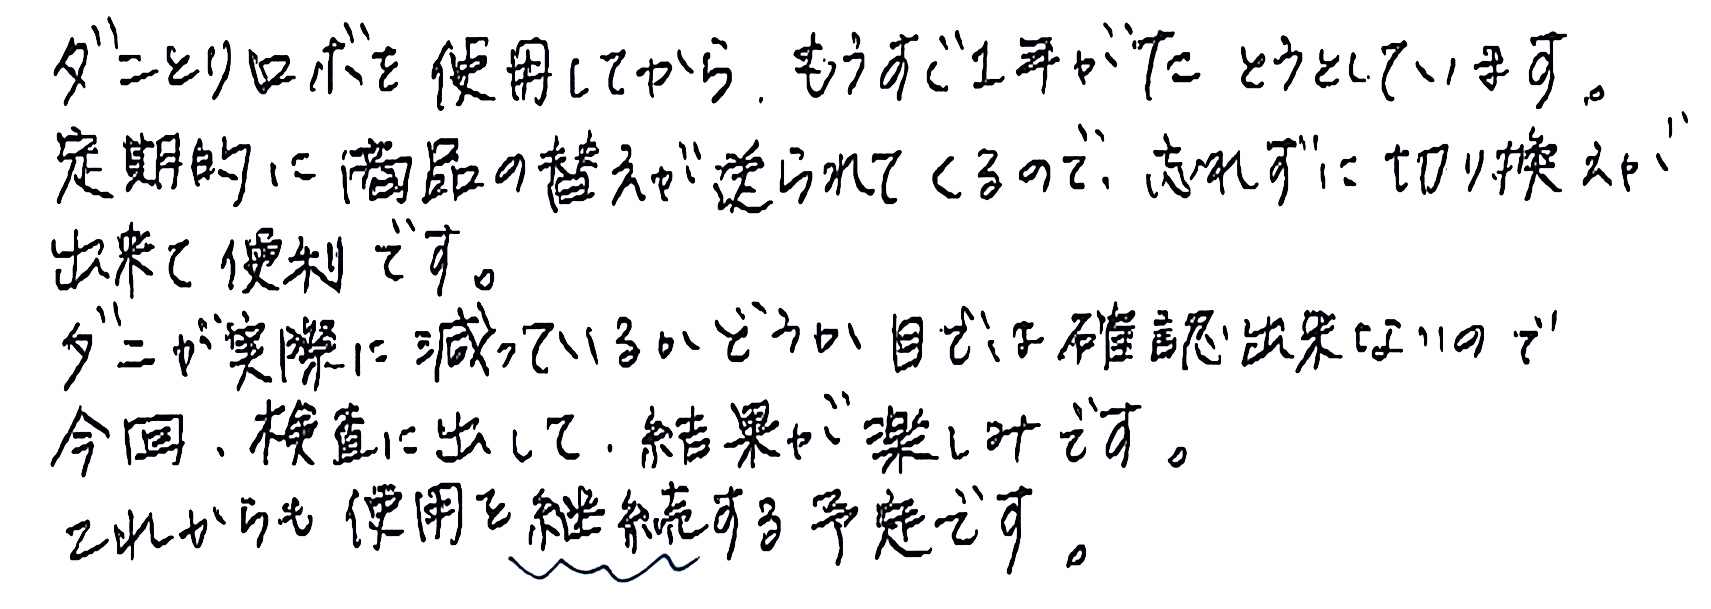 ダニとりロボを使用してから、もうすぐ1年がたとうとしています。
定期的に商品の替えが送られてくるので、忘れずに切り換えが
出来て便利です。
ダニが実際に減っているかどうか目では確認出来ないので
今回、検査に出して、結果が楽しみです。
これからも使用を継続する予定です。